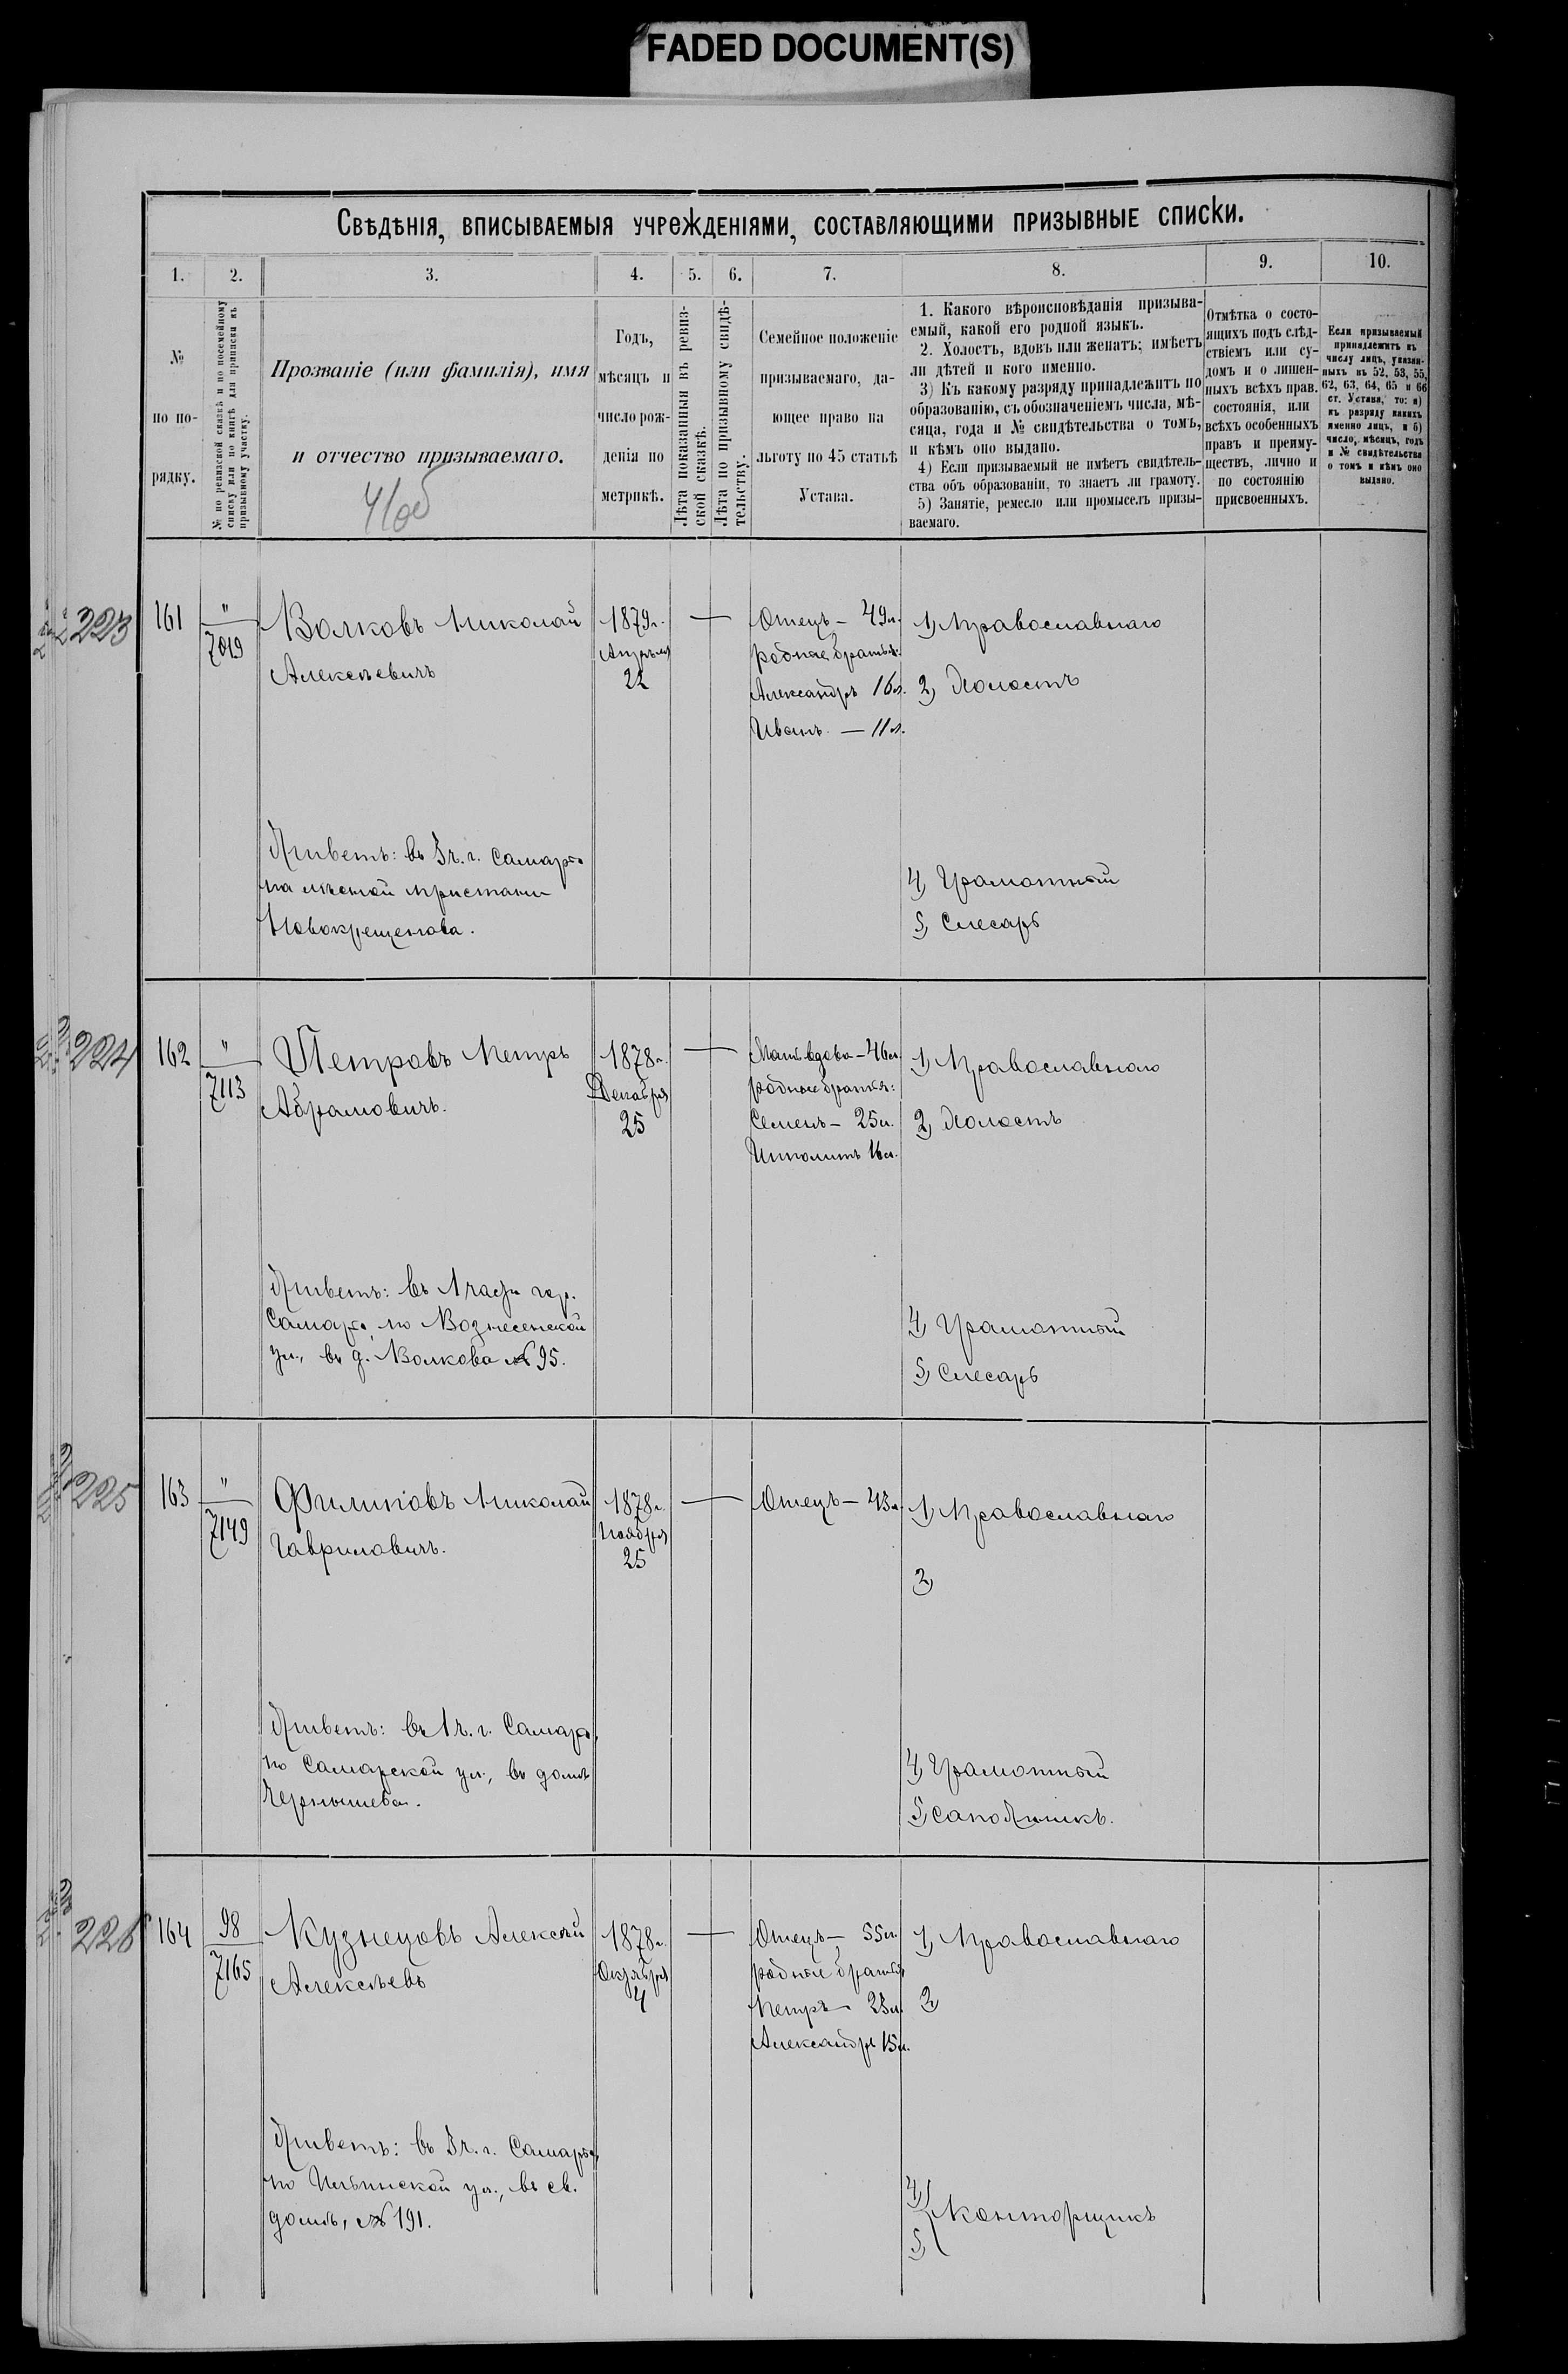 FADED DOCUMENT(S)
Свѣдѣнія, вписываемыя учрежденіями, составляющими призывные списки.
1. 2. 3. 4. 5. 6. 7. 8. 9. 10.
№
по по-
рядку.
№ по ревизской сказкѣ и по посемейному
списку или по книгѣ для приписки къ
призывному участку.
Прозваніе (или фамилія), имя
и отчество призываемаго.
Годъ,
мѣсяцъ и
число рож-
денія по
метрикѣ.
Лѣта показанныя въ ревиз-
ской сказкѣ.
Лѣта по призывному свидѣ-
тельству.
Семейное положеніе
призываемаго, да-
ющее право на
льготу по 45 статьѣ
Устава.
1. Какого вѣроисповѣданія призыва-
емый, какой его родной языкъ.
2. Холостъ, вдовъ или женатъ; имѣетъ
ли дѣтей и кого именно.
3) Къ какому разряду принадлежитъ по
образованію, съ обозначеніемъ числа, мѣ-
сяца, года и № свидѣтельства о томъ,
и кѣмъ оно выдано.
4) Если призываемый не имѣетъ свидѣтель-
ства объ образованіи, то знаетъ ли грамоту.
5) Занятіе, ремесло или промыселъ призы-
ваемаго.
Отмѣтка о состо-
ящихъ подъ слѣд-
ствіемъ или су-
домъ и о лишен-
ныхъ всѣхъ прав.
состоянія, или
всѣхъ особенныхъ
правъ и преиму-
ществъ, лично и
по состоянію
присвоенныхъ.
Если призываемый
принадлежитъ къ
числу лицъ, указан-
ныхъ въ 52, 53, 55,
62, 63, 64, 65 и 66
ст. Устава, то: а)
къ разряду какихъ
именно лицъ, и б)
число, мѣсяцъ, годъ
и № свидѣтельства
о томъ и кѣмъ оно
выдано.
223
161
"
7049
Волковъ Николай
Алексѣевичъ
1879г.
Апрѣля
22
Отецъ – 49л.
родные братья:
Александръ 16л.
Иванъ. – 11л.
1, Православнаго
2, Холостъ
Живетъ: въ 3ч. г. Самары
на лѣсной пристани
Новокрещенова.
4, Грамотный
5, Слесарь
224
162
"
7113
Петровъ Петръ
Абрамовичъ.
1878г.
Декабря
25
Мать вдова – 46л.
родные братья:
Семенъ – 25л.
Ипполитъ 16л.
1, Православнаго
2, Холостъ
Живетъ: въ 1 части гор.
Самары, по Вознесенской
ул., въ д. Волкова № 95.
4, Грамотный
5, Слесарь
225
163
"
7149
Филиповъ Николай
Гавриловичъ.
1878г.
Ноября
25
Отецъ – 43л.
1, Православнаго
2,
Живетъ: въ 1ч. г. Самары,
по Самарской ул., въ домѣ
Чернышева.
4, Грамотный
5, Сапожникъ.
226
164
98
7165
Кузнецовъ Алексѣй
Алексѣевъ
1878г.
Октября
4
Отецъ – 55л.
родные братья
Петръ – 23л.
Александръ 15л.
1, Православнаго
2,
Живетъ: въ 3ч. г. Самары,
по Ильинской ул., въ св.
домѣ, № 191.
4,
Конторщикъ
5,